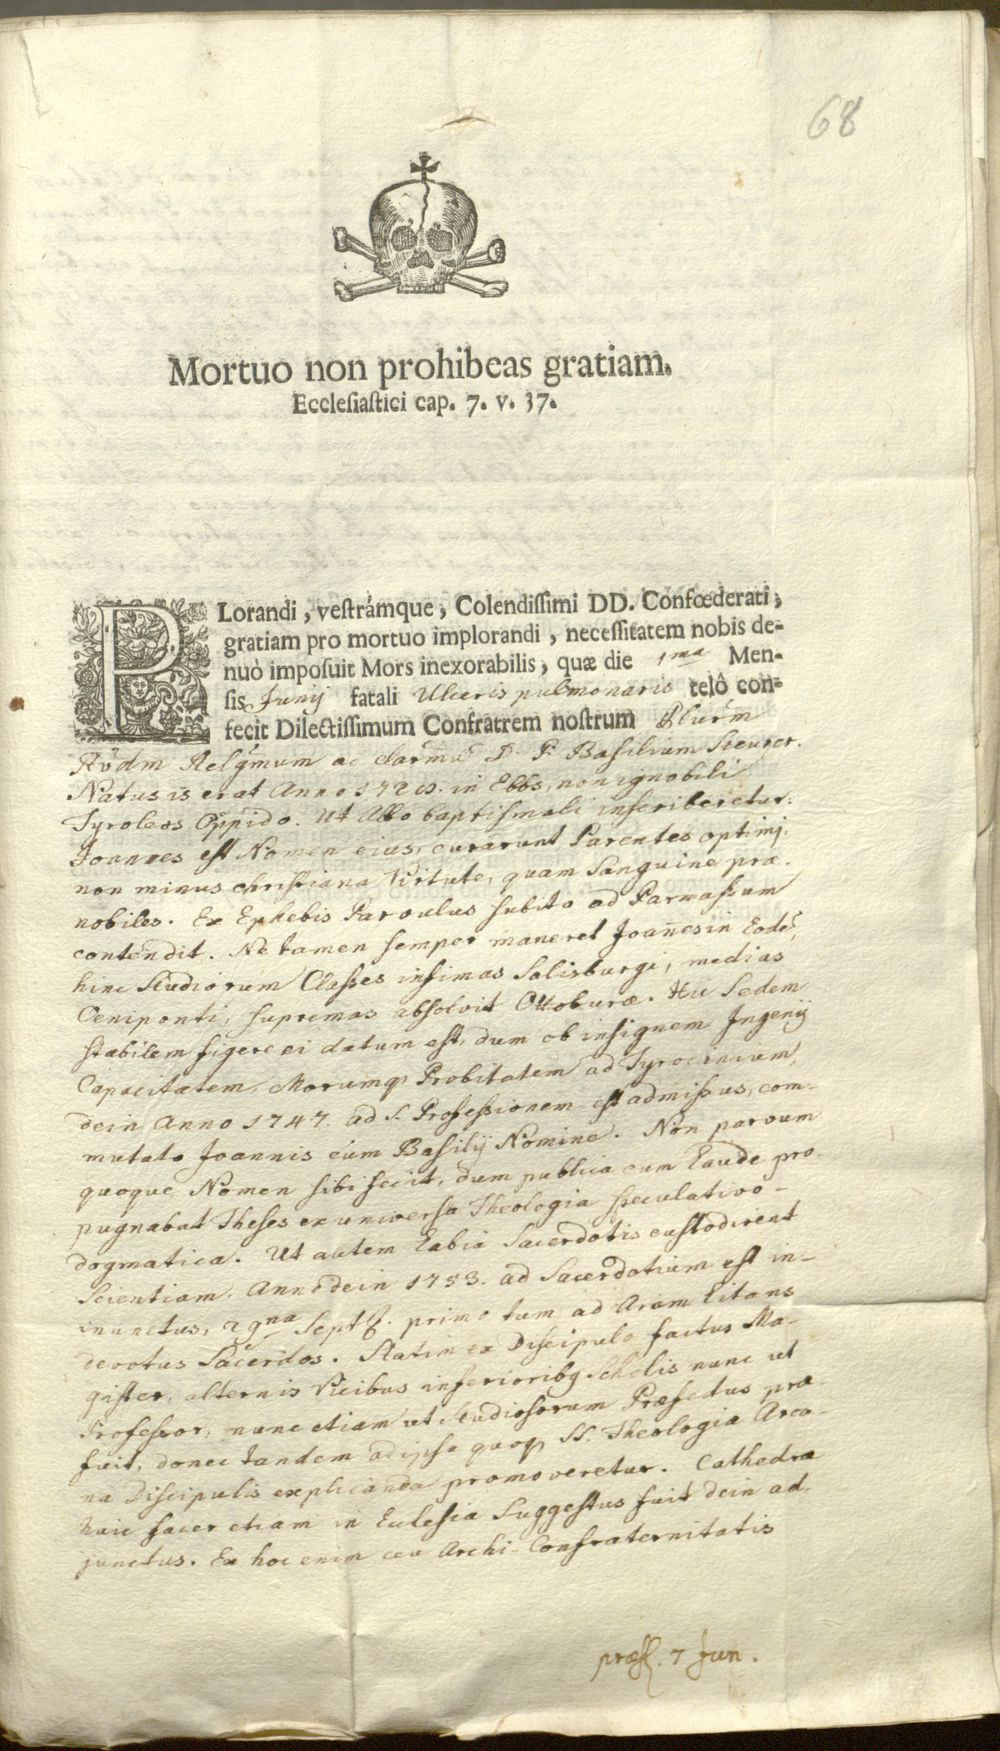 68
Mortuo non prohibeas gratiam.
Ecclesiastici cap. 7. v. 37.
PLorandi, vestrámque, Colendissimi DD. Confœderati,
gratiam pro mortuo implorandi, necessitatem nobis de-
nuò imposuit Mors inexorabilis, quæ die 1ma Men-
sis Junij fatali Ulceris pulmonaris telô con-
fecit Dilectissimum Confratrem nostrum Plurm
Rvdm Relgmum ac clarmũ D. P. Basilium Steurer.
Natus is erat Anno in Ebbs, non ignobili
Tyroleos Oppido. Ut Albo baptismali inscriberetur.
Joannes est Nomen eius, curarunt Parentes optimi,
non minus christiana Virtute, quam Sanguine præ-
nobiles. Ex Ephebis Parvulus subito ad Parnassum
contendit. Ne tamen semper maneret Joañes in Eodẽ,
hinc Studiorum Classes infimas Salisburgi, medias
Oeniponti, supremas absolvit Ottoburæ. Hic Sedem
stabilem figere ei datum est, dum ob insignem Ingenij
Capacitatem, Morumq Probitatem ad Tyrocinium,
dein Anno 1747. ad S. Professionem est admissus, com-
mutato Joannis cum Basilij Nomine. Non parvum
quoque Nomen sibi fecit, dum publica cum Laude pro-
pugnabat Theses ex universa Theologia speculativo-
dogmatica. Ut autem Labia Sacerdotis custodirent
Scientiam, Anno dein 1753. ad Sacerdotium est in-
unctus, 29na Septb. primo tum ad Aram Litans
devotus Sacerdos. Statim ex Discipulo factus Ma-
gister, alternis Vicibus inferioribq Scholis nunc ut
Professor, nunc etiam ut Studiosorum Præfectus præ-
fuit, donec tandem ad ipsa quoq SS. Theologiæ Arca-
na Discipulis explicanda promoveretur. Cathedræ
huic sacer etiam in Ecclesia Suggestus fuit dein ad-
junctus. Ex hoc enim ceu Archi-Confraternitatis
præs. 7 Jun.